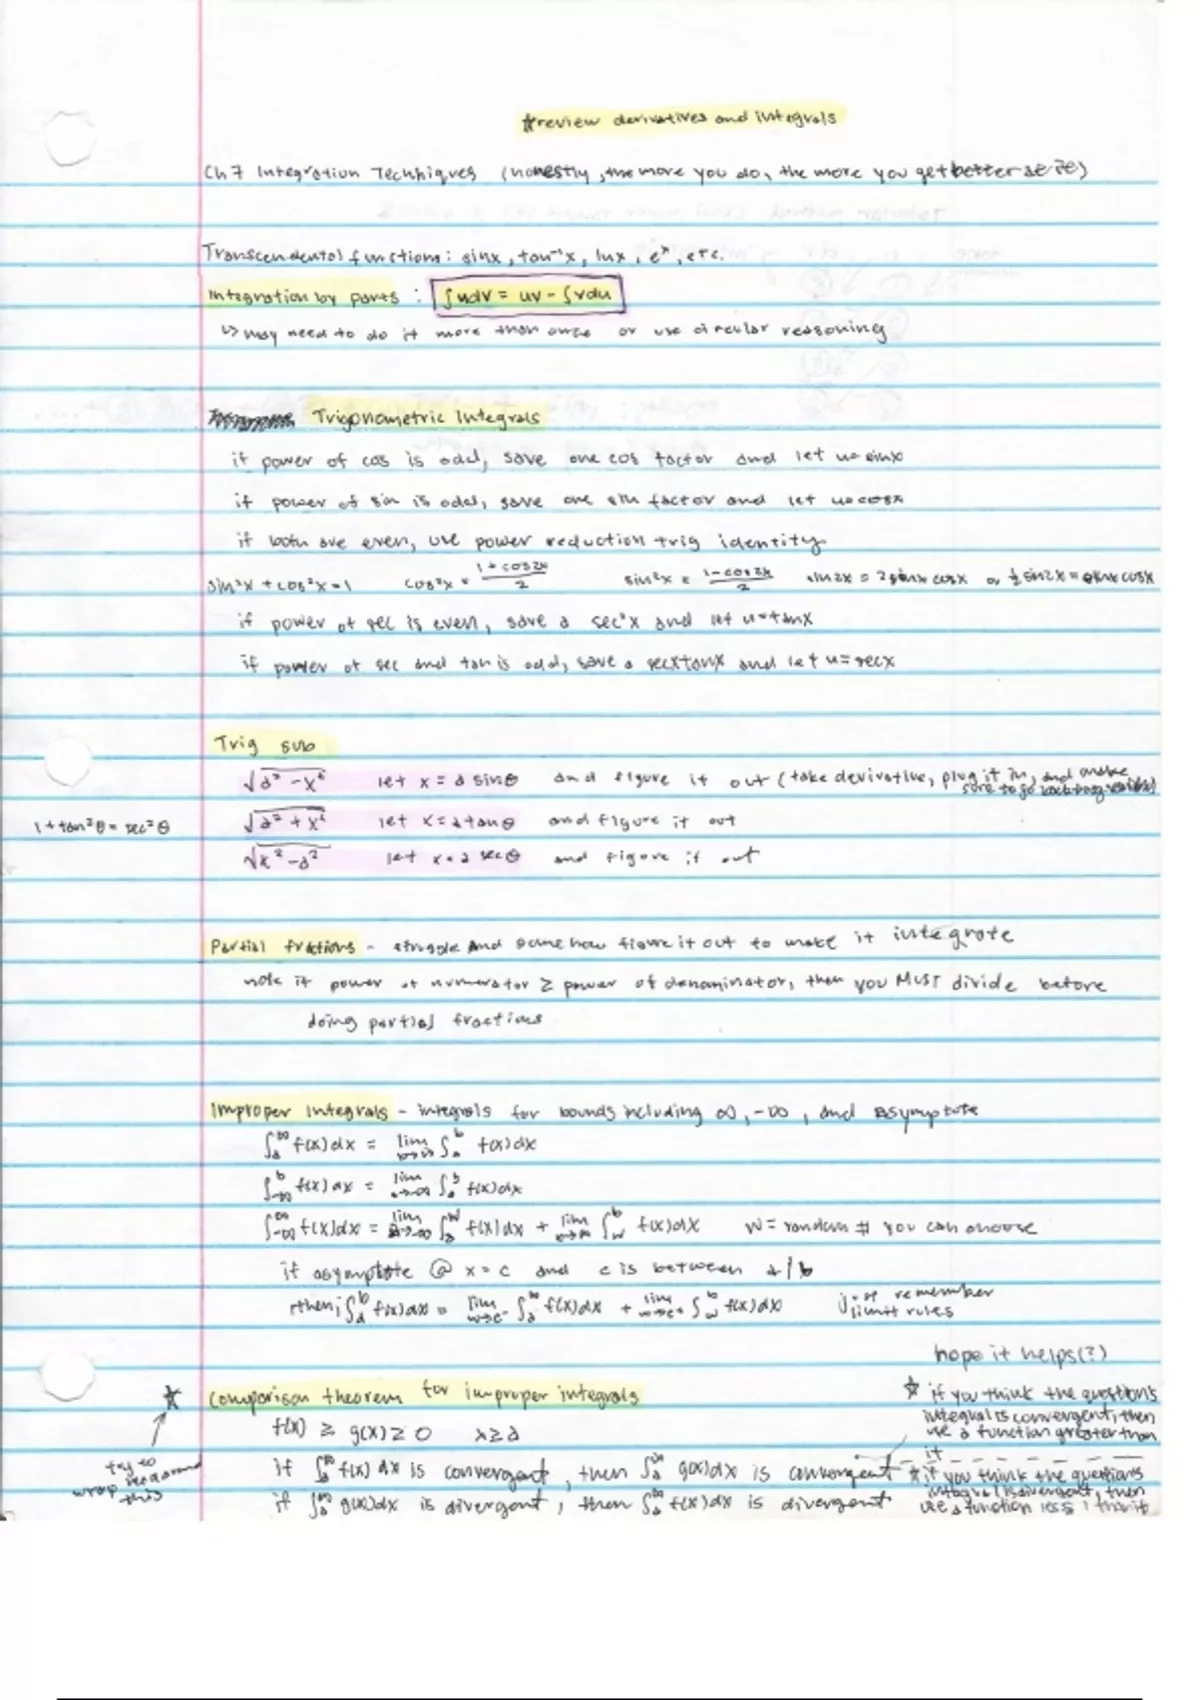 *review derivatives and integrals
Ch 7 Integration Techniques (honestly, the more you do, the more you get better at it)
Transcendental functions: sinx, tan⁻¹x, lnx, eˣ, etc.
Integration by parts : ∫udv = uv - ∫vdu
↳ may need to do it more than once or use circular reasoning
Trigonometric Integrals
if power of cos is odd, save one cos factor and let u=sinx
if power of sin is odd, save one sin factor and let u=cosx
if both are even, use power reduction trig identity
sin²x + cos²x = 1 cos²x = (1+cos2x)/2 sin²x = (1-cos2x)/2 sin2x = 2sinx cosx or ½ sin2x = sinx cosx
if power of sec is even, save a sec²x and let u=tanx
if power of sec and tan is odd, save a secxtanx and let u=secx
Trig sub
√a² - x² let x = a sinθ and figure it out (take derivative, plug it in, and make
sure to go back
1+tan²θ = sec²θ √a² + x² let x = a tanθ and figure it out
√x² - a² let x = a secθ and figure it out
Partial fractions - struggle and somehow figure it out to make it integrate
note if power of numerator ≥ power of denominator, then you MUST divide before
doing partial fractions
Improper Integrals - integrals for bounds including ∞, -∞, and asymptote
∫ₐ^∞ f(x)dx = lim b→∞ ∫ₐᵇ f(x)dx
∫₋∞ᵇ f(x)dx = lim a→-∞ ∫ₐᵇ f(x)dx
∫₋∞^∞ f(x)dx = lim a→-∞ ∫ₐʷ f(x)dx + lim b→∞ ∫wᵇ f(x)dx w = random # you can choose
if asymptote @ x=c and c is between a/b
then; ∫ₐᵇ f(x)dx = lim w→c⁻ ∫ₐʷ f(x)dx + lim w→c⁺ ∫wᵇ f(x)dx just remember
limit rules
hope it helps(?)
* Comparison theorem for improper integrals
f(x) ≥ g(x) ≥ 0 x≥a
if ∫ₐ^∞ f(x)dx is convergent, then ∫ₐ^∞ g(x)dx is convergent
if ∫ₐ^∞ g(x)dx is divergent, then ∫ₐ^∞ f(x)dx is divergent
try to
wrap head around
this
* if you think the question's
integral is convergent, then
use a function greater than
it
* if you think the questions
integral is divergent, then
use a function less than it